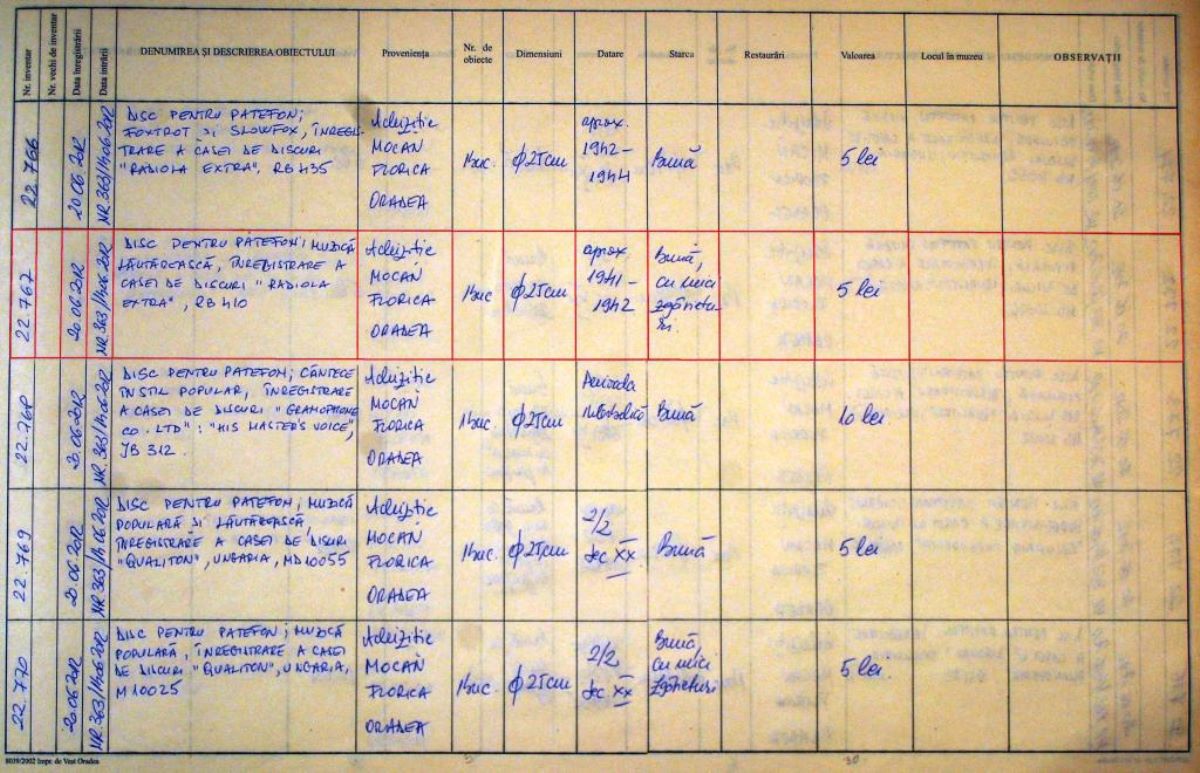 Nr. inventar
Nr. vechi de inventar
Data înregistrării
Data intrării
DENUMIREA ȘI DESCRIEREA OBIECTULUI
Proveniența
Nr. de
obiecte
Dimensiuni
Datare
Starea
Restaurări
Valoarea
Locul în muzeu
OBSERVAȚII
22.766
20.06.2012
NR.363/14.06.2012
DISC PENTRU PATEFON;
FOXTROT ȘI SLOWFOX, ÎNREGIS-
TRARE A CASEI DE DISCURI
"RADIOLA EXTRA", RB 435
Achiziție
MOCAN
FLORICA
ORADEA
1 buc.
ϕ 25 cm
aprox.
1942-
1944
Bună
5 lei
22.767
20.06.2012
NR.363/14.06.2012
DISC PENTRU PATEFON; MUZICĂ
LĂUTĂREASCĂ, ÎNREGISTRARE A
CASEI DE DISCURI "RADIOLA
EXTRA", RB 410
Achiziție
MOCAN
FLORICA
ORADEA
1 buc
ϕ 25 cm
aprox.
1941-
1942
Bună,
cu mici
zgârietu-
ri.
5 lei
22.768
20.06.2012
NR.363/14.06.2012
DISC PENTRU PATEFON; CÂNTECE
ÎN STIL POPULAR, ÎNREGISTRARE
A CASEI DE DISCURI "GRAMOPHONE
CO. LTD": "HIS MASTER'S VOICE",
JB 312.
Achiziție
MOCAN
FLORICA
ORADEA
1 buc.
ϕ 25 cm
Perioada
interbelică
Bună
10 lei
22.769
20.06.2012
NR.363/14.06.2012
DISC PENTRU PATEFON; MUZICĂ
POPULARĂ ȘI LĂUTĂREASCĂ,
ÎNREGISTRARE A CASEI DE DISCURI
"QUALITON", UNGARIA, MD 10055
Achiziție
MOCAN
FLORICA
ORADEA
1 buc.
ϕ 25 cm
2/2
sec. XX
Bună
5 lei
22.770
20.06.2012
NR.363/14.06.2012
DISC PENTRU PATEFON; MUZICĂ
POPULARĂ, ÎNREGISTRARE A CASEI
DE DISCURI "QUALITON", UNGARIA,
M 10025
Achiziție
MOCAN
FLORICA
ORADEA
1 buc.
ϕ 25 cm
2/2
sec. XX
Bună,
cu mici
zgârieturi
5 lei
8039/2002 Impr. de Vest Oradea